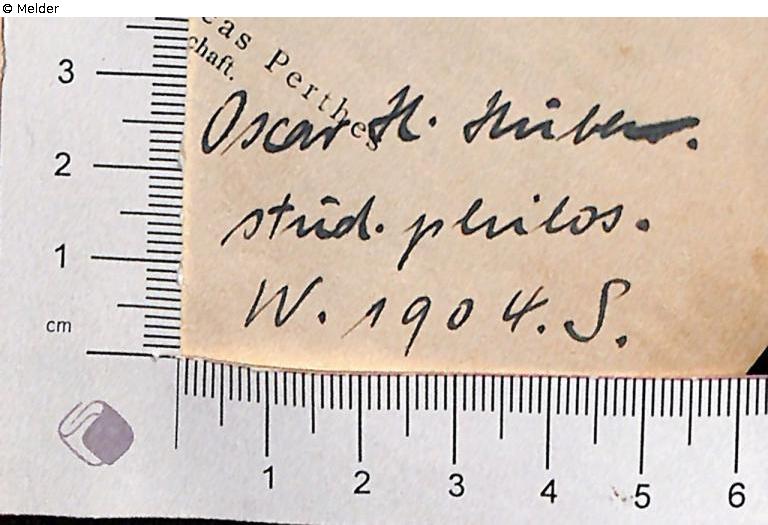 © Melder
eas Perthes
chaft.
Oscar H.
stud. philos.
W. 1904. S.
3
2
1
cm
1 2 3 4 5 6